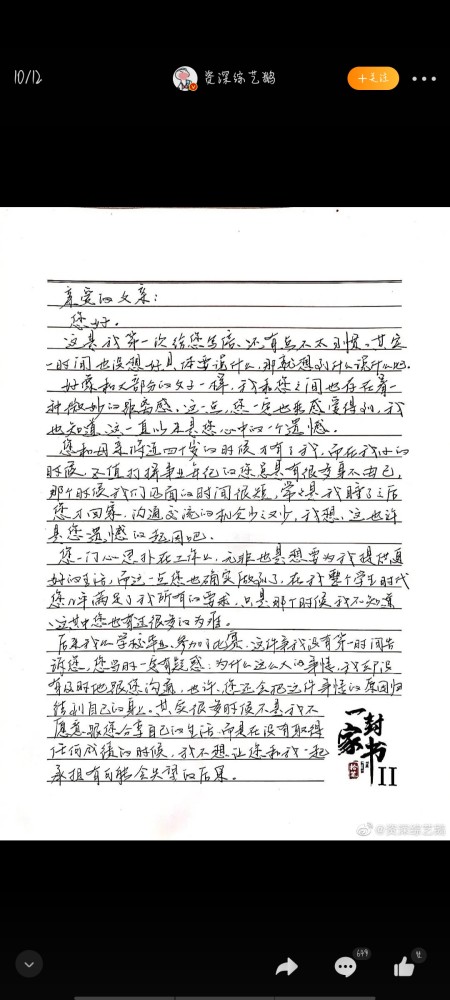 10/12
资深综艺鹅
+关注
亲爱的父亲：
您好。
这是我第一次给您写信，还有点不太习惯。其实
一时间也没想好具体要说什么，那就想到什么说什么吧。
好像和大部分的父子一样，我和您之间也存在着一
种微妙的距离感，这一点，您一定也能感觉得到，我
也知道，这一直以来是您心中的一个遗憾。
您和母亲将近四十岁的时候才有了我，而在我小的
时候，又值打拼事业年纪的您总是有很多身不由己，
那个时候我们见面的时间很短，常常是我睡了之后
您才回家，沟通交流的机会少之又少，我想，这也许
是您遗憾的起因吧。
您一门心思扑在工作上，无非也是想要为我提供更
好的生活，而这一点您也确实做到了，在我整个学生时代
您几乎满足了我所有的要求，只是那个时候我不知道，
这其中您也有过很多的为难。
后来我从学校毕业，参加了比赛，这件事我没有第一时间告
诉您，您当时一定有疑惑，为什么这么大的事情，我却没
有及时地跟您沟通，也许，您还会把这件事情的原因归
结到自己的身上。其实很多时候不是我不
愿意跟您分享自己的生活，而是在没有取得
任何成绩的时候，我不想让您和我一起
承担有可能会失望的后果。
一封家书
II
@资深综艺鹅
679